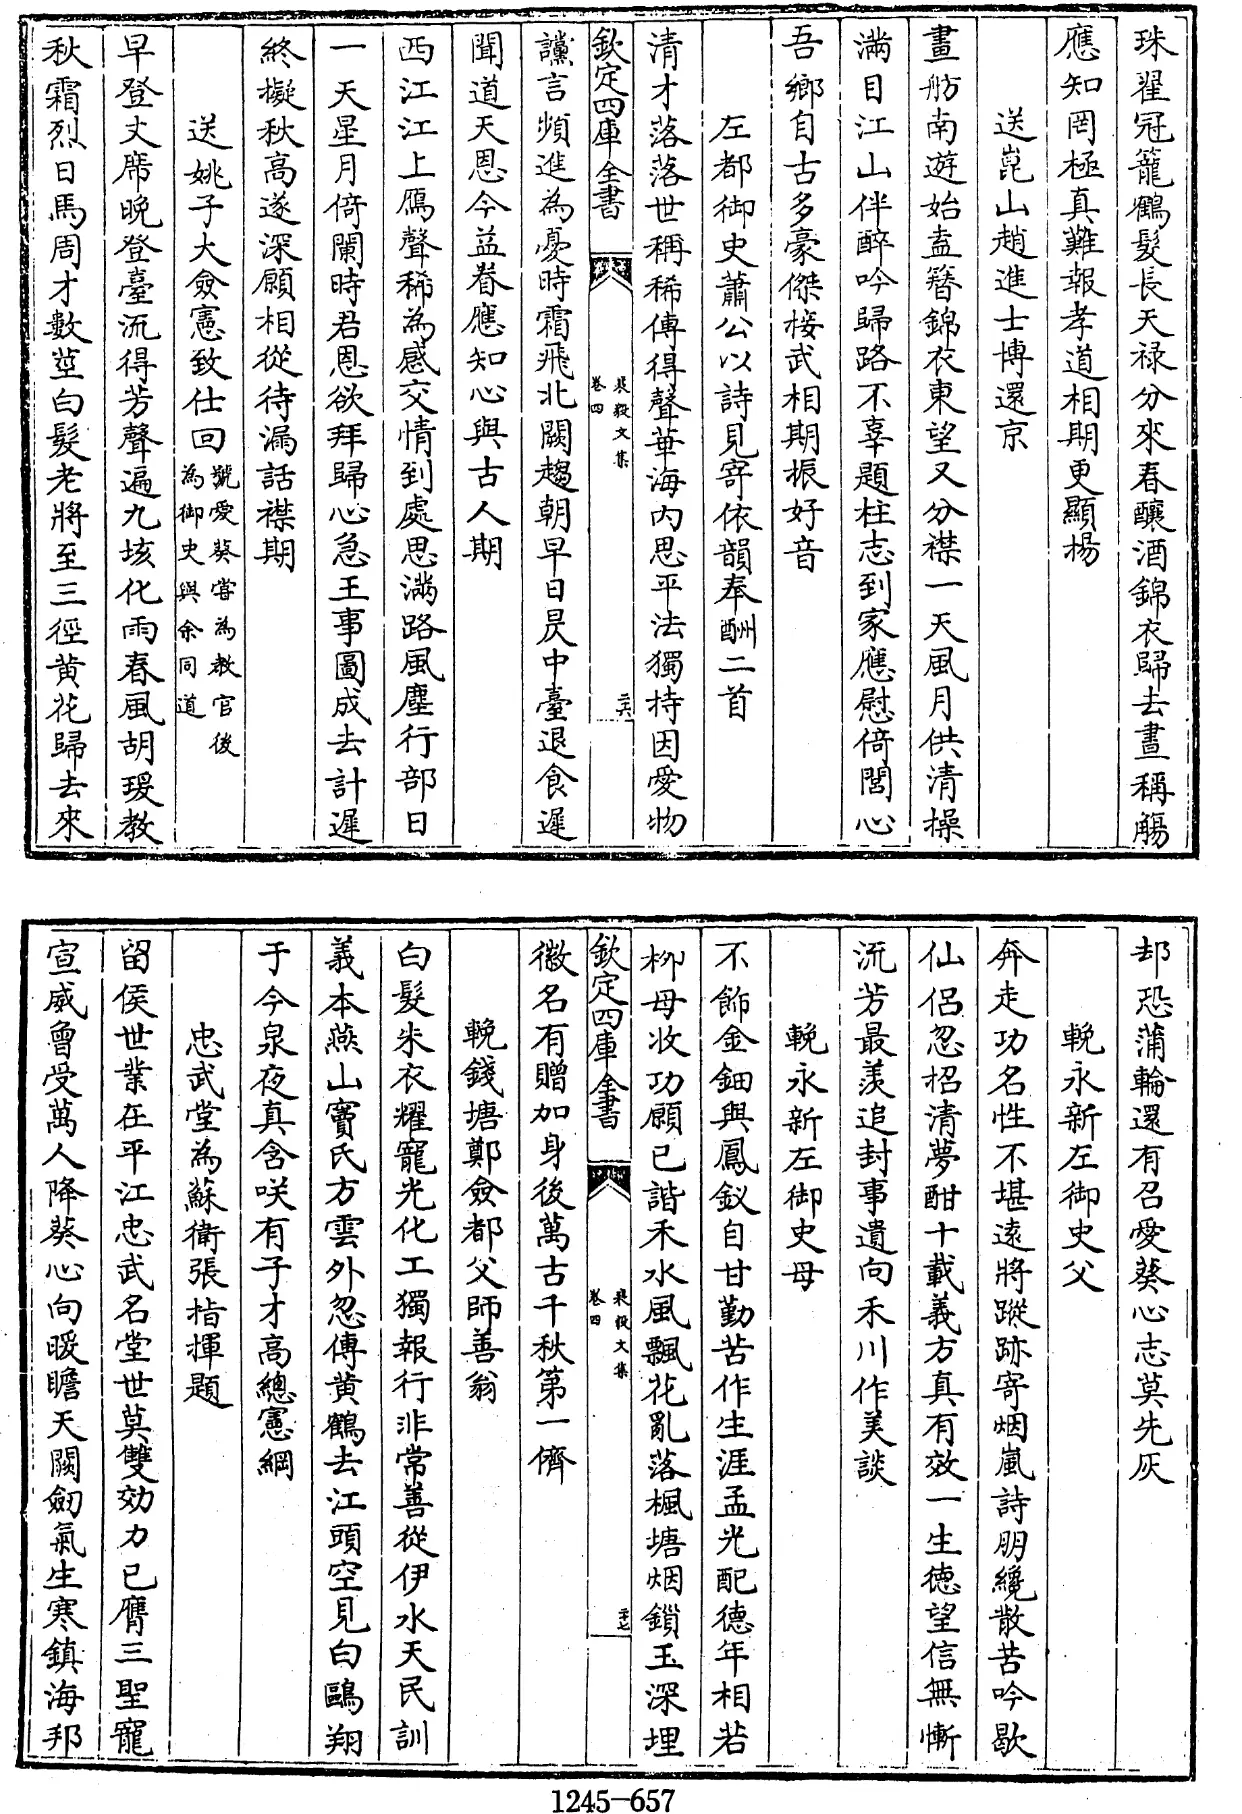 珠翟冠籠鶴髮長天祿分來春釀酒錦衣歸去晝稱觴
應知罔極真難報孝道相期更顯揚
送崑山趙進士博還京
畫舫南遊始盍簪錦衣東望又分襟一天風月供清操
滿目江山伴醉吟歸路不辜題柱志到家應慰倚閭心
吾鄉自古多豪傑接武相期振好音
左都御史蕭公以詩見寄依韻奉酬二首
清才落落世稱稀傳得聲華海内思平法獨持因愛物
欽定四庫全書
襄毅文集
卷四
二六
讜言頻進為憂時霜飛北闕趨朝早日昃中臺退食遲
聞道天恩今益眷應知心與古人期
西江江上鴈聲稀為感交情到處思滿路風塵行部日
一天星月倚闌時君恩欲拜歸心急王事圖成去計遲
終擬秋高遂深願相從待漏話襟期
送姚子大僉憲致仕回號愛葵嘗為教官後為御史與余同道
早登丈席晚登臺流得芳聲遍九垓化雨春風胡瑗教
秋霜烈日馬周才數莖白髮老將至三徑黄花歸去來
却恐蒲輪還有召愛葵心志莫先灰
輓永新左御史父
奔走功名性不堪遠將蹤跡寄烟嵐詩朋纔散苦吟歇
仙侣忽招清夢酣十載義方真有效一生德望信無慚
流芳最羨追封事遺向禾川作美談
輓永新左御史母
不飾金鈿與鳳釵自甘勤苦作生涯孟光配德年相若
柳母收功願已諧禾水風飄花亂落楓塘烟鎖玉深埋
欽定四庫全書
襄毅文集
卷四
二七
徽名有贈加身後萬古千秋第一儕
輓錢塘鄭僉都父師善翁
白髮朱衣耀寵光化工獨報行非常善從伊水天民訓
義本燕山竇氏方雲外忽傳黄鶴去江頭空見白鷗翔
于今泉夜真含咲有子才高總憲綱
忠武堂為蘇衛張指揮題
留侯世業在平江忠武名堂世莫雙効力已膺三聖寵
宣威曾受萬人降葵心向暖瞻天闕劒氣生寒鎮海邦
1245-657